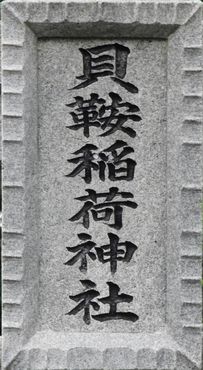 貝鞍稲荷神社